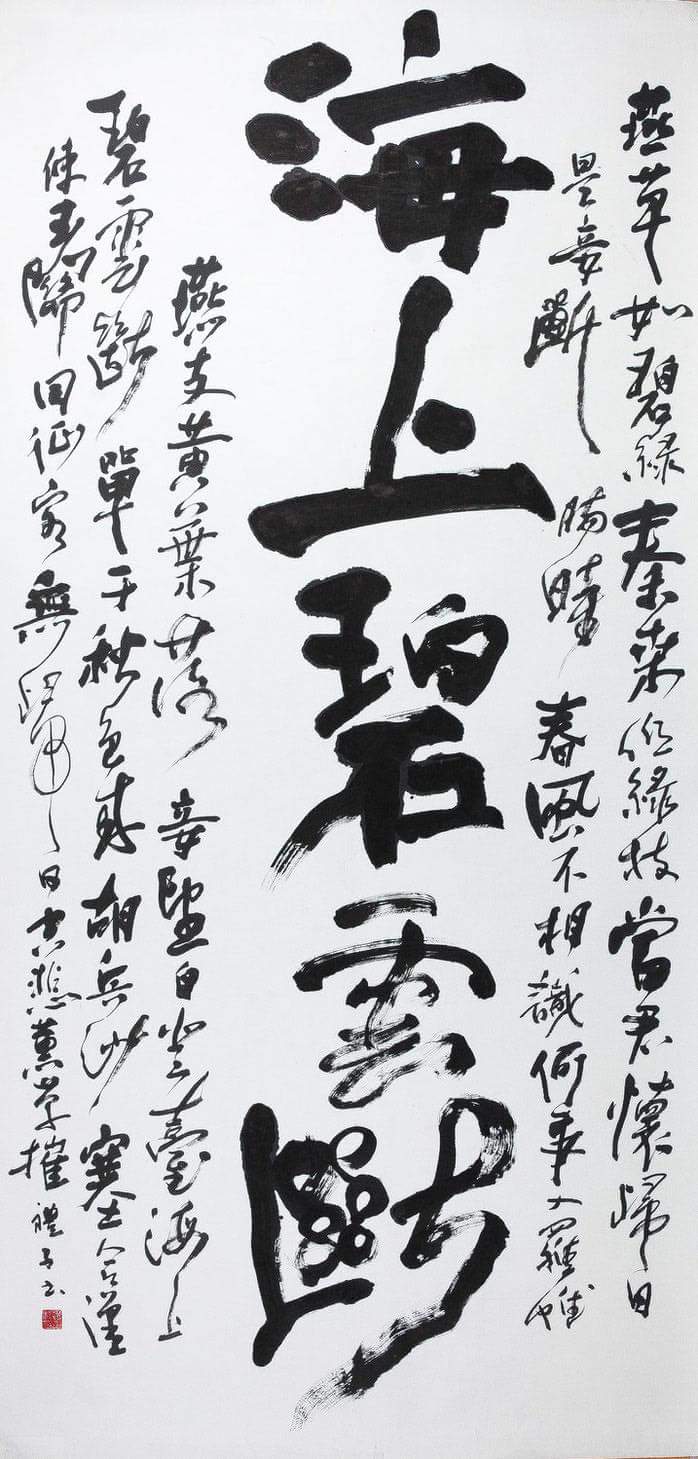 燕草如碧絲秦桑低綠枝當君懷歸日
是妾斷腸時春風不相識何事入羅幃
海上碧雲斷
燕支黃葉落妾望自登臺海上
碧雲斷單于秋色來胡兵沙塞合漢
使玉關回征客無歸日空悲蕙草摧禮子書